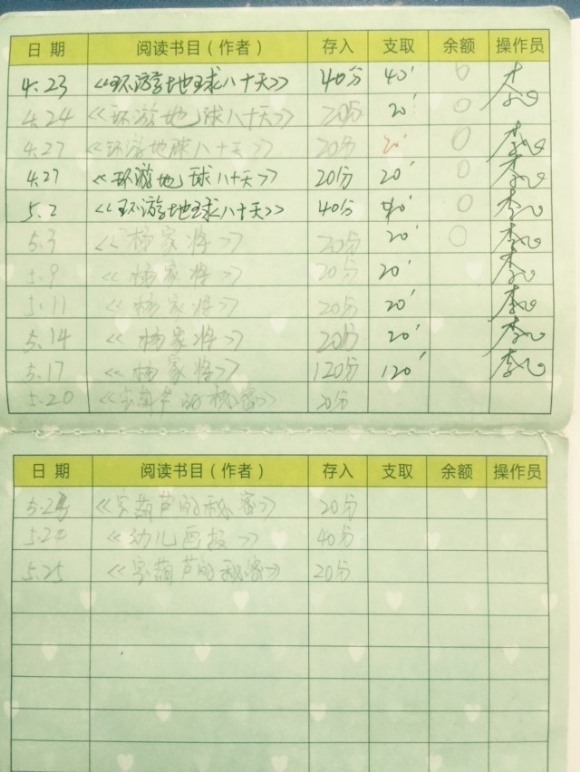 日期 阅读书目(作者) 存入 支取 余额 操作员
4.23 《环游地球八十天》 40分 40' 0
4.24 《环游地球八十天》 20分 20' 0
4.27 《环游地球八十天》 20分 20' 0 李
4.27 《环游地球八十天》 20分 20' 0 李
5.2 《环游地球八十天》 40分 40' 0 李
5.3 《杨家将》 20分 20' 0 李
5.9 《杨家将》 20分 20' 李
5.11 《杨家将》 20分 20' 李
5.14 《杨家将》 20分 20' 李
5.17 《杨家将》 120分 120' 李
5.20 《宝葫芦的秘密》 20分
日期 阅读书目(作者) 存入 支取 余额 操作员
《宝葫芦的秘密》 20分
5.24 《幼儿画报》 40分
5.25 《宝葫芦的秘密》 20分